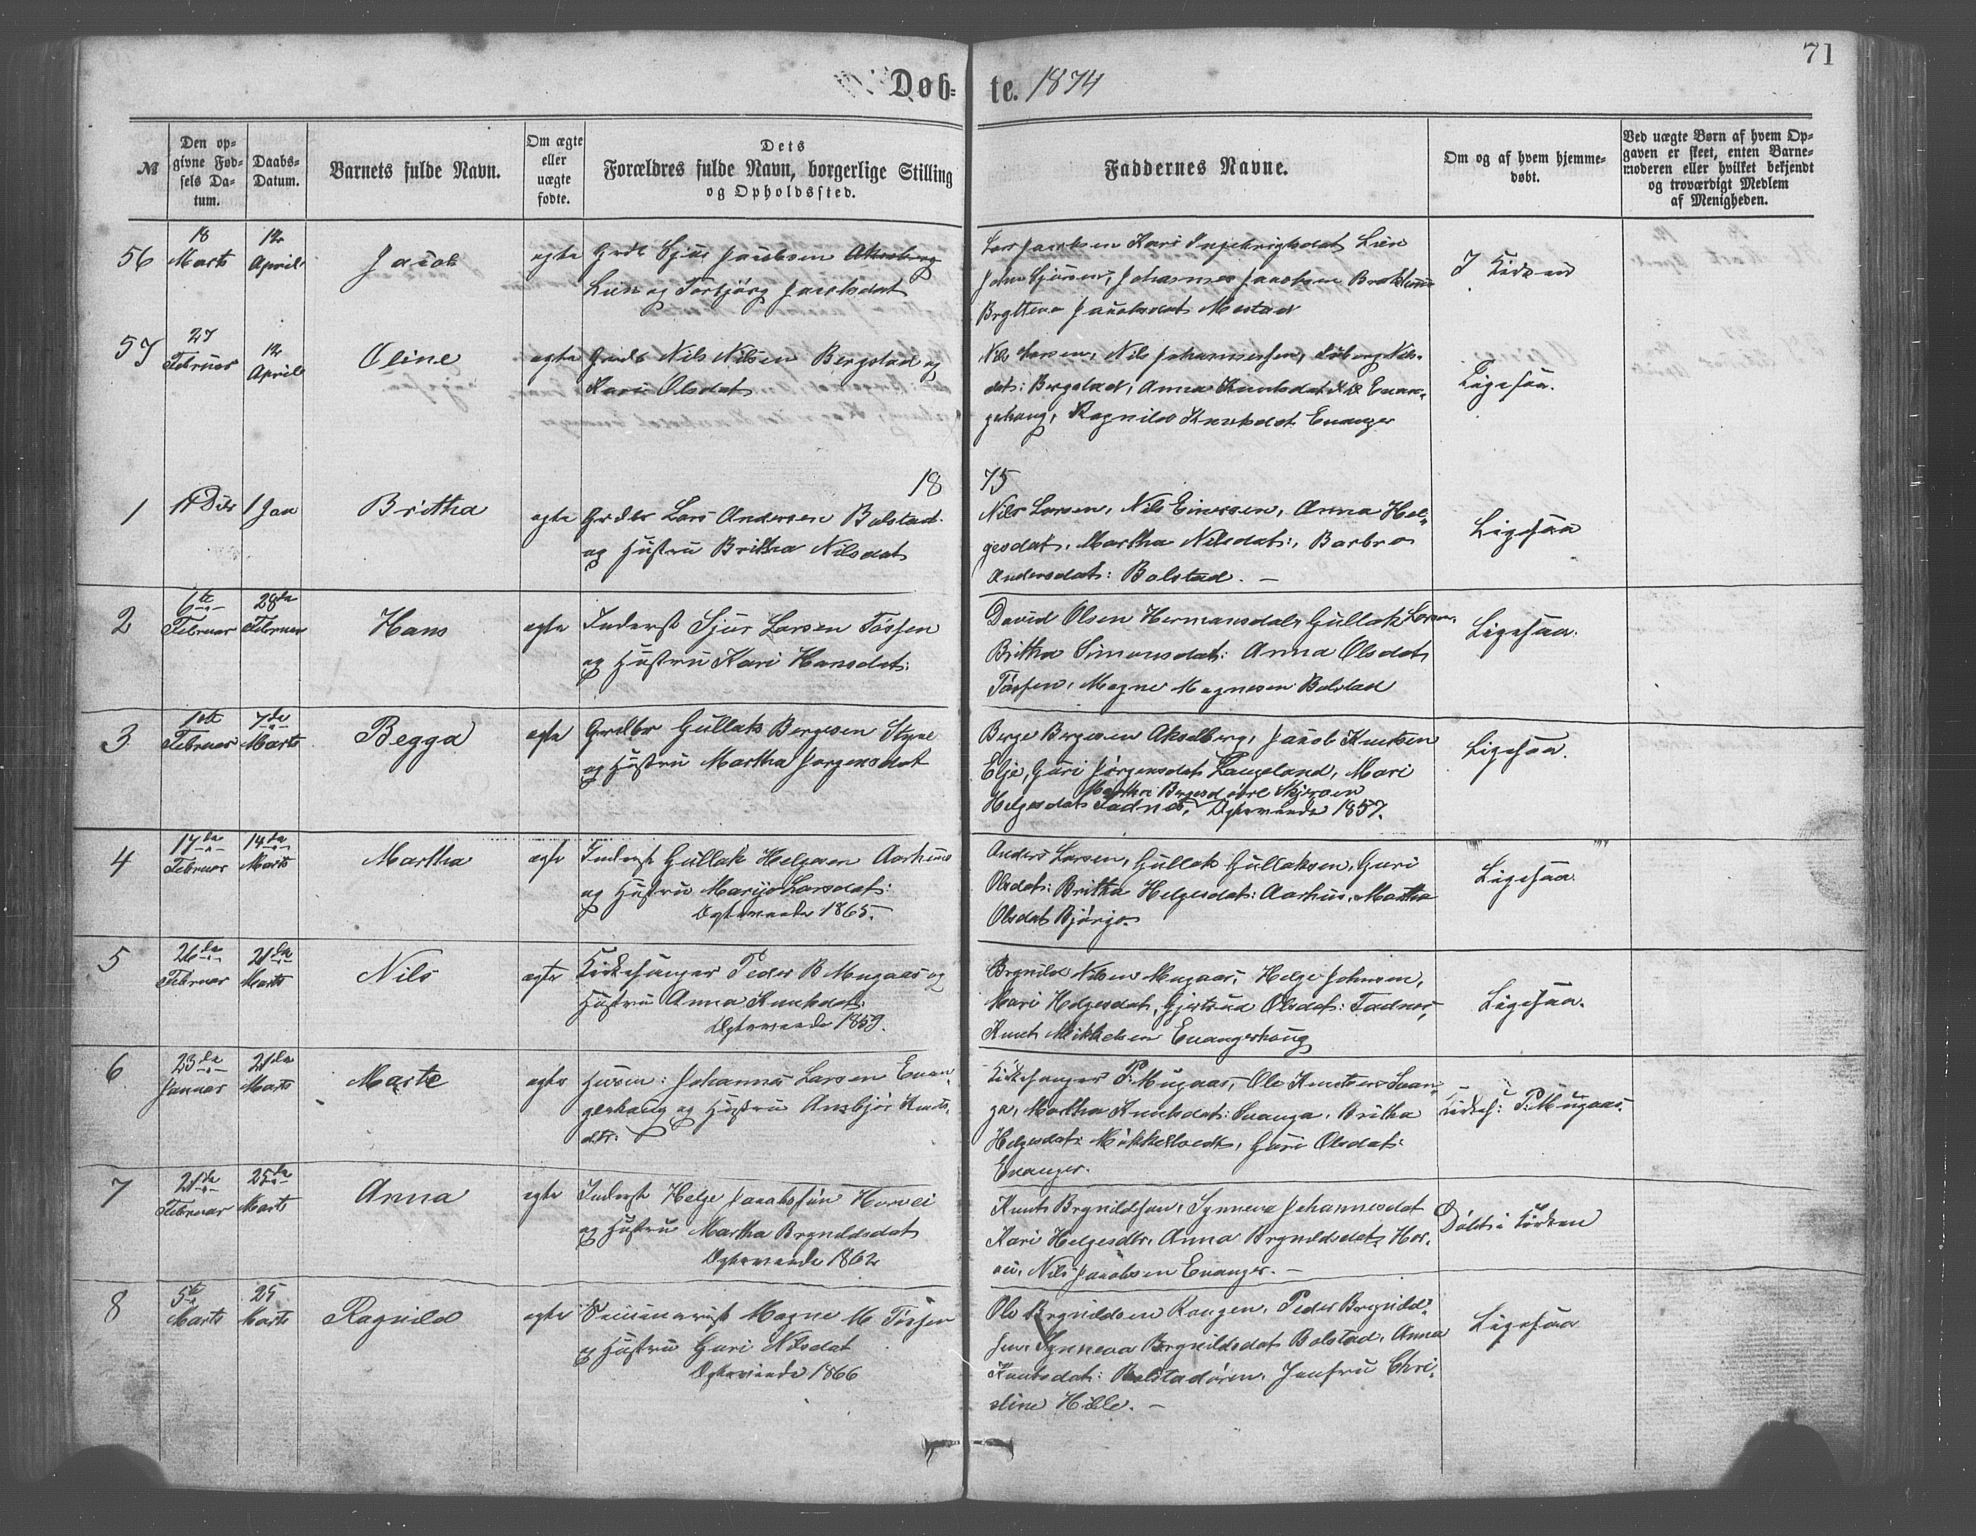 71
Døb-te. 1874
№
Den op-
givne Fød-
sels Da-
tum.
Daabs-
Datum.
Barnets fulde Navn.
Om ægte
eller
uægte
fødte.
Dets
Forældres fulde Navn, borgerlige Stilling
og Opholdssted.
Faddernes Navne.
Om og af hvem hjemme-
døbt.
Ved uægte Børn af hvem Op-
gaven er skeet, enten Barne-
moderen eller hvilket bekjendt
og troværdigt Medlem
af Menigheden.
56
18
Marts
12
April
Jacob
ægte
Grdb Sjur Jacobsen
Lien og Torbjørg Jacobsdat
Lars Jacobsen Kari Ingebrigtsdat Lien
John Sjursen, Johannes Jacobsen
Brytteva Jacobsdat: Mestad
I Kirken
57
27
Februar
12
April
Oline
ægte
Grdb Nils Nilsen Bergstad og
Kari Olsdat
Nils Larsen, Nils Johannessen, Nils-
dat: Bergstad, Anna Knutsdat Evan-
gerhaug, Ragnilda Knutsdat Evanger
Ligesaa.
1875
1
14 Dcbr
1 Jan
Britha
ægte
Grdbr Lars Andersen Bolstad
og Hustru Britha Nilsdat
Nils Larsen, Nils Einersen, Anna Hel-
gesdat, Martha Nilsdat:, Barbro
Andersdat: Bolstad. —
Ligesaa
2
6te
Februar
28de
Februar
Hans
ægte
Inderst Sjur Larsen Fosse
og Hustru Kari Hansdat:
David Olsen Hermansdal, Gullak Larsen,
Britha Simonsdat: Anna Olsdat
Fossen, Magne Magnesen Bolstad
Ligesaa.
3
Februar
7de
Marts
Begga
ægte
Grdbr Gullak Bergesen Styve
og Hustru Martha Jørgensdat
Berge Bergesen Akselberg, Jacob Knutsen
Elje, Guri Jørgensdat Langeland, Mari
Martha
Helgesdat Fadnes, Ægteviede 1857.
Ligesaa.
4
17de
Februar
14de
Marts
Martha
ægte
Inderst Gullak Helgesen Aarhus
og Hustru Marijo Larsdat:
Ægteviede 1865.
Anders Larsen, Gullak Gullaksen, Guri
Olsdat: Britha Helgesdat: Aarhus, Martha
Olsdat Bjørgo.
Ligesaa.
5
26de
Februar
21de
Marts
Nils
ægte
Kirkesanger Peder B Mugaas og
Hustru Anna Knutsdat:
Ægteviede 1859.
Brynild Nilsen Mugaas, Helge Johnsen,
Mari Helgesdat, Gjertrud Olsdat: Fadnes,
Knut Mikkelsen Evangerhaug
Ligesaa.
6
23de
Januar
21de
Marts
Marte
ægte
Husm: Johannes Larsen Evan-
gerhaug og Hustru Ansbjør Knuts-
dtr.
Kirkesanger P: Mugaas, Ole Knutsen Svan-
ga, Martha Knutsdat: Svanga, Britha
Helgesdat: Mikkeltvedt, Guri Olsdat:
Evanger.
Kirkes: P: Mugaas.
7
21de
Februar
25de
Marts
Anna
ægte
Inderst Helge Jacobsen Horvei
og Hustru Martha Brynildsdat
Ægteviede 1862
Knut Brynildsen, Synneva Johannesdat
Kari Helgesdtr. Anna Brynildsdat, Hor-
vei, Nils Jacobsen Evanger. —
Døbt i Kirken
8
5te
Marts
25
Marts
Ragnild
ægte
Seminarist Magne M Fossen
og Hustru Guri Nilsdat
Ægteviede 1866
Ole Brynildsen Rongen, Peder Brynild-
sen, Synneva Brynildsdat Bolstad, Anna
Knutsdat: Bolstadøren, Jomfru Chri-
stine Hille. —
Ligesaa